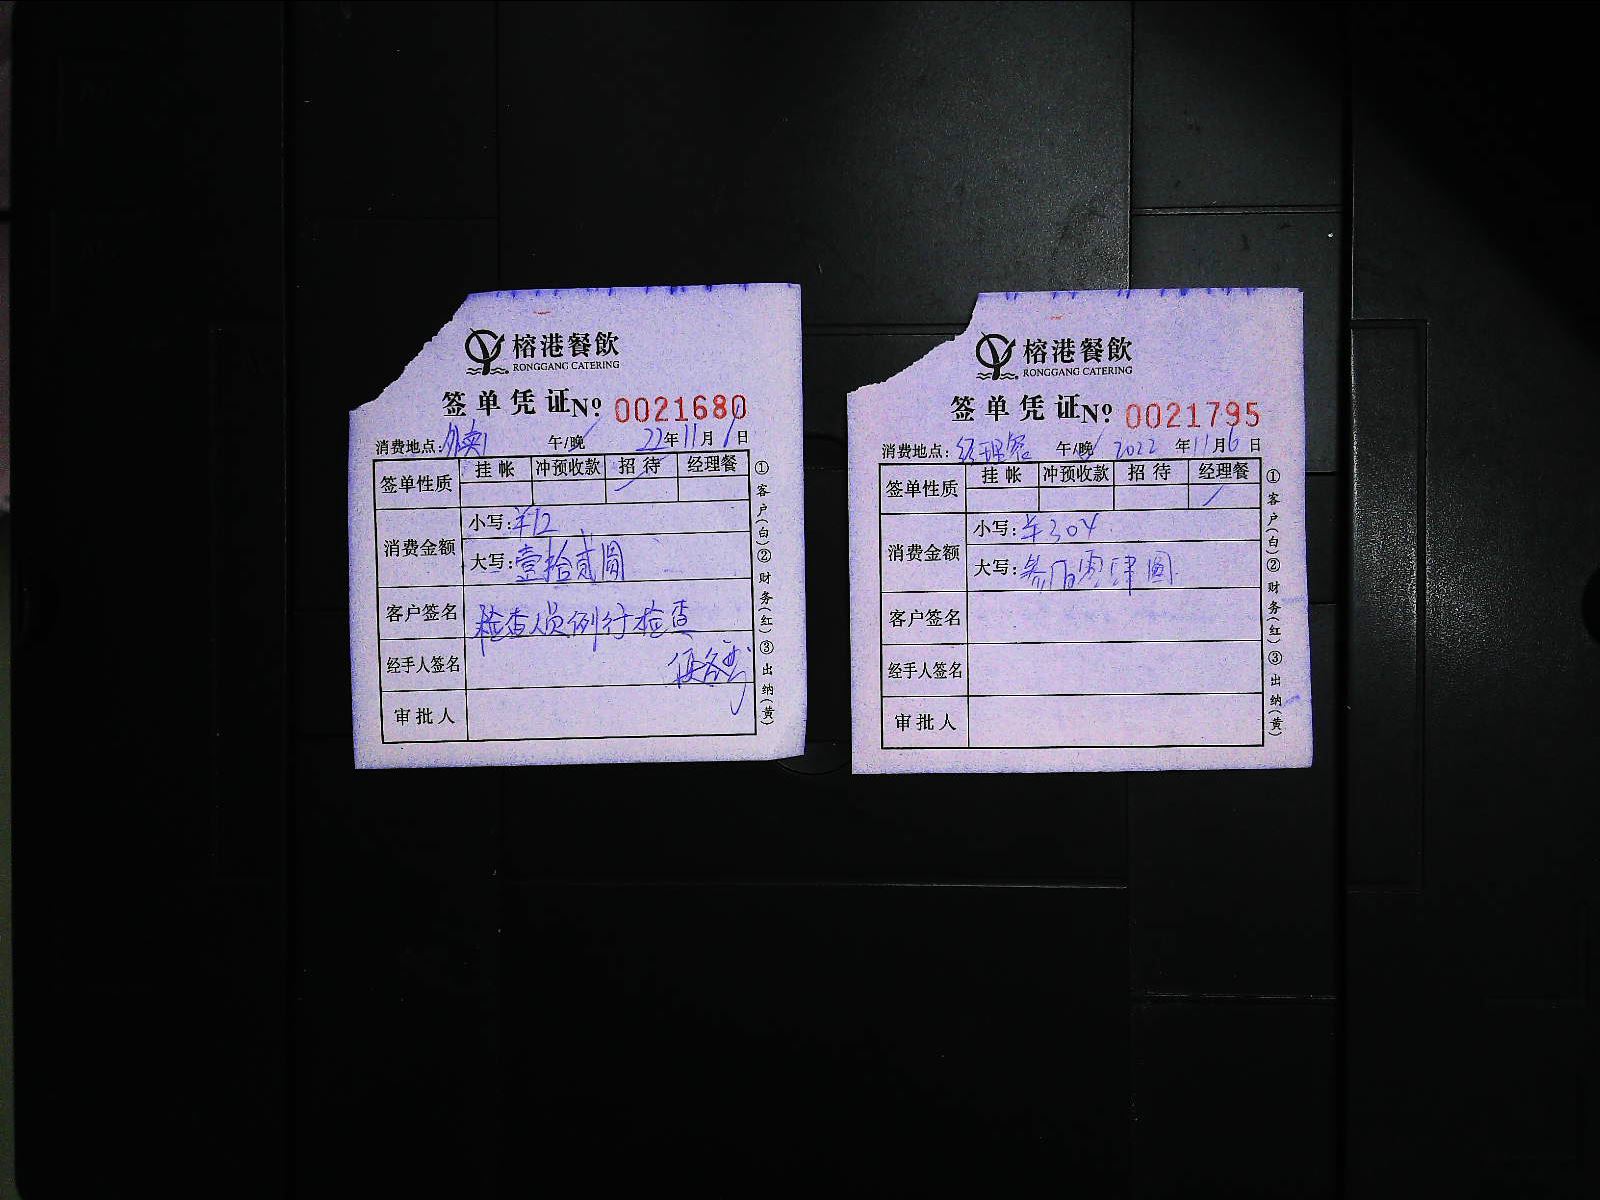 榕港餐飲
RONGGANG CATERING
签单凭证№ 0021680
消费地点:外卖 午/晚 22年11月1日
签单性质 挂帐 冲预收款 招待 经理餐
消费金额
小写:¥12
大写:壹拾贰圆
客户签名 检查人员例行检查
经手人签名
审批人
①客户(白)②财务(红)③出纳(黄)
榕港餐飲
RONGGANG CATERING
签单凭证№ 0021795
消费地点:经理餐 午/晚 2022年11月6日
签单性质 挂帐 冲预收款 招待 经理餐
消费金额
小写:¥304
大写:叁佰零肆圆
客户签名
经手人签名
审批人
①客户(白)②财务(红)③出纳(黄)